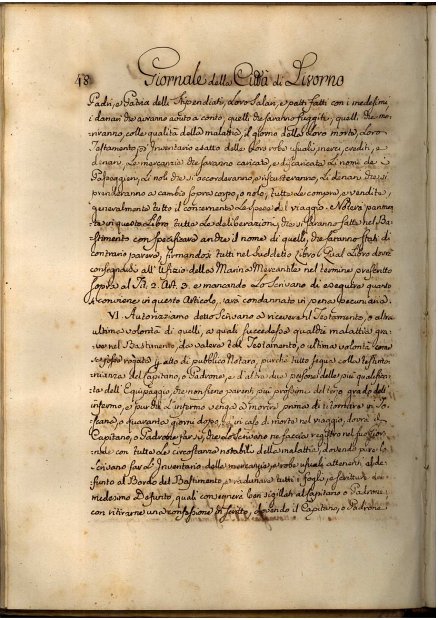 48
Giornale della Città di Livorno
Padri, e Patria delli Stipendiati, Loro Salari, e patti fatti con i medesimi,
i danari che avranno avuto a conto, quelli che saranno fuggiti, quelli che mo-
riranno, colle qualità della malattia, il giorno della Loro morte, Loro
Testamento, o Inventario esatto delle Loro robe usuali, averi, crediti, e
denari, Le mercanzie che saranno caricate, e discaricate, Li nomi de i
Passeggieri, Li noli che si accordano, e riscuteranno, Li denari che si
prenderanno a cambio sopra corpo, o nolo, tutte le compre, e vendite,
generalmente tutto il concernente Le spese di Viaggio. Noterà parimen-
te in questo Libro tutte Le deliberazioni, che si faranno fatte nel Ba-
stimento con specificare anche il nome di quelli, che saranno stati di
contrario parere, firmandosi tutti nel suddetto Libro, il qual Libro dovrà
consegnarsi all'Ufizio della Marina Mercantile nel termine prescritto
sopra al Tit. 2. Art. 3. e mancando Lo Scrivano di eseguire quanto
si conviene in questo Articolo, sarà condannato in pena pecuniaria.
VI. Autoriziamo detto Scrivano a ricevere il Testamento, o altra
ultima volontà di quelli, a quali succedesse qualche malattia gra-
ve nel Bastimento, da valere tal Testamento, o ultima volontà come
se fosse rogato p. atto di pubblico Notaro, purchè tutto segua colla testimo-
nianza del Capitano, o Padrone, e d'altre due persone delle più qualifica-
te dell'Equipaggio che non sieno parenti più prossimi del terzo grado dell'
infermo, e purchè L'infermo venga a morire prima di ritornare in To-
scana, o quaranta giorni dopo. In caso di morte nel viaggio, dovrà il
Capitano, o Padrone fare sì, che Lo Scrivano ne faccia registro nel suo Gior-
nale con tutte Le circostanze notabili della malattia, dovendo pure lo
Scrivano fare L'Inventario delle mercanzie, e robe usuali attenenti al de-
funto al Bordo del Bastimento, e radunare tutti i fogli, e scritture del
medesimo Defunto, quali consegnerà ben sigillati al Capitano o Padrone,
con ritirarne una confessione in scritto, dovendo il Capitano, o Padrone